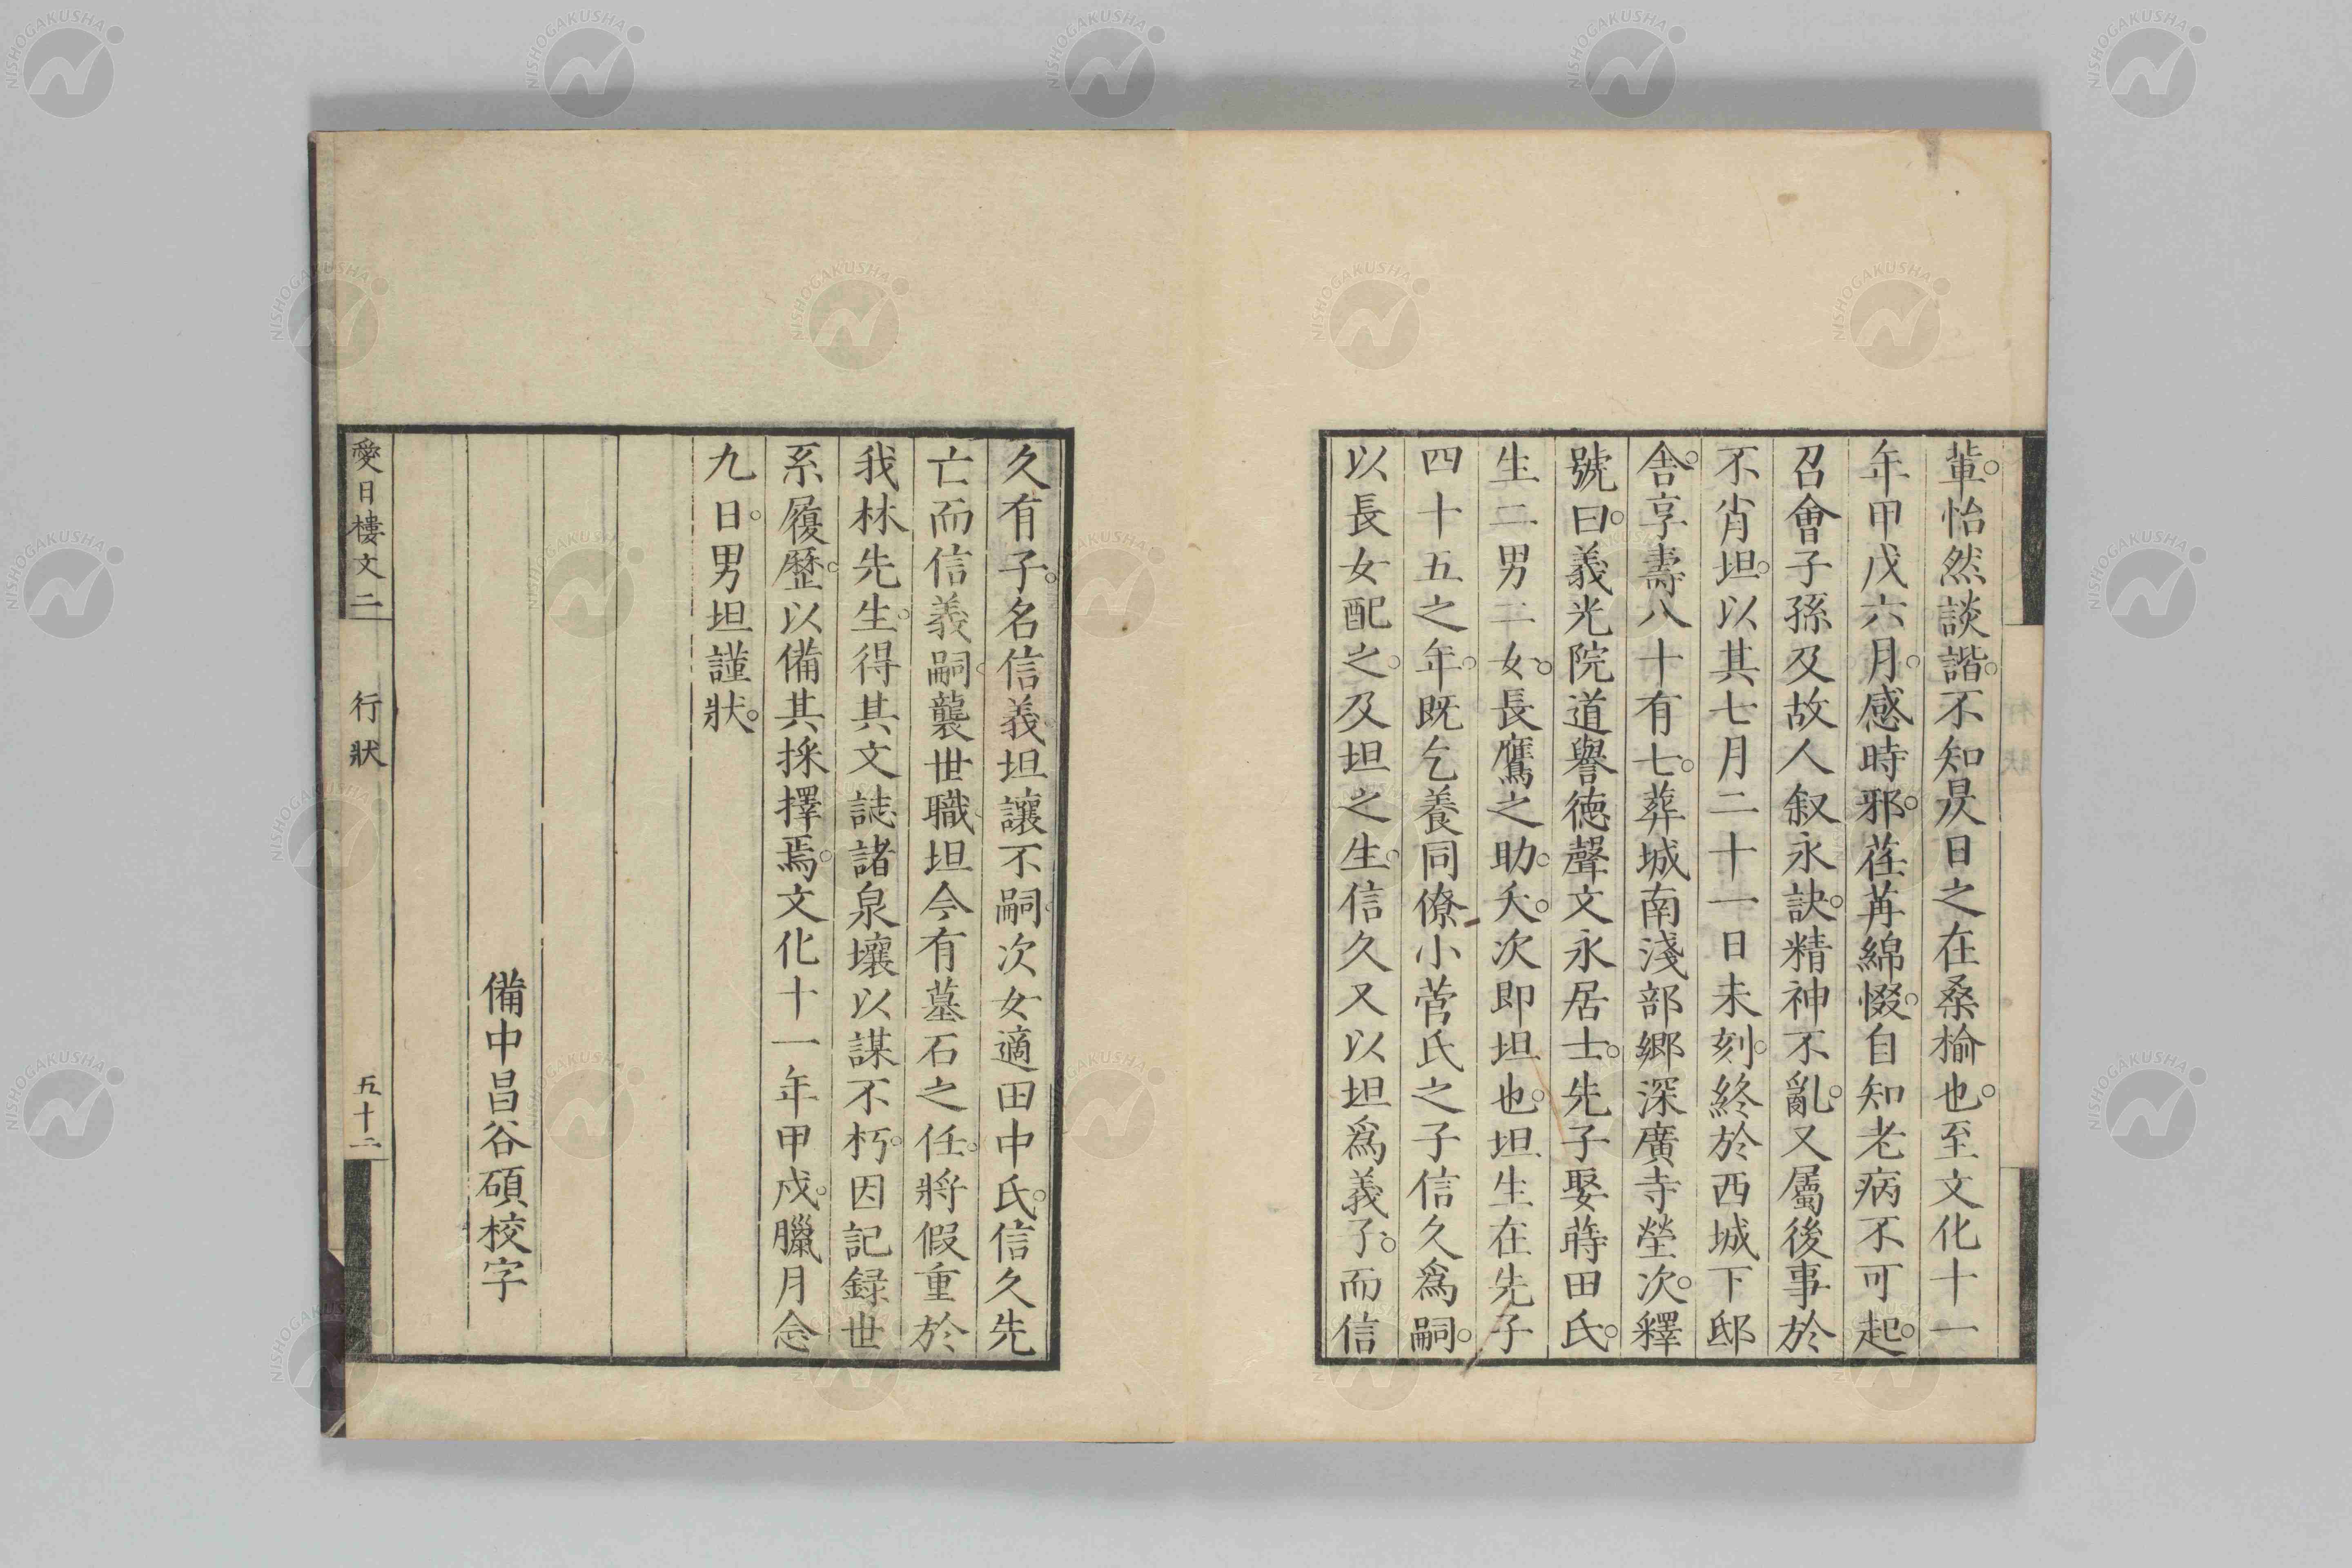 輩。怡然談諧。不知昃日之在桑榆也。至文化十一
年甲戌六月。感時邪。荏苒綿惙。自知老病不可起。
召會子孫及故人叙永訣。精神不亂。又屬後事於
不肖坦。以其七月二十一日未刻。終於西城下邸
舍。享壽八十有七。葬城南淺部郷深廣寺塋次。釋
號曰。義光院道譽徳聲文永居士。先子娶蒔田氏。
生二男二女。長鷹之助。夭。次即坦也。坦生在先子
四十五之年。既乞養同僚小菅氏之子信久爲嗣。
以長女配之。及坦之生。信久又以坦爲義子。而信
久有子。名信義坦讓不嗣。次女適田中氏。信久先
亡而信義嗣。襲世職。坦今有墓石之任。將假重於
我林先生。得其文誌諸泉壤以謀不朽。因記録世
系履歴。以備其採擇焉。文化十一年甲戌。臘月念
九日。男坦謹狀。
備中昌谷碩校字
愛日樓文二
行狀
五十二
NISHOGAKUSHA